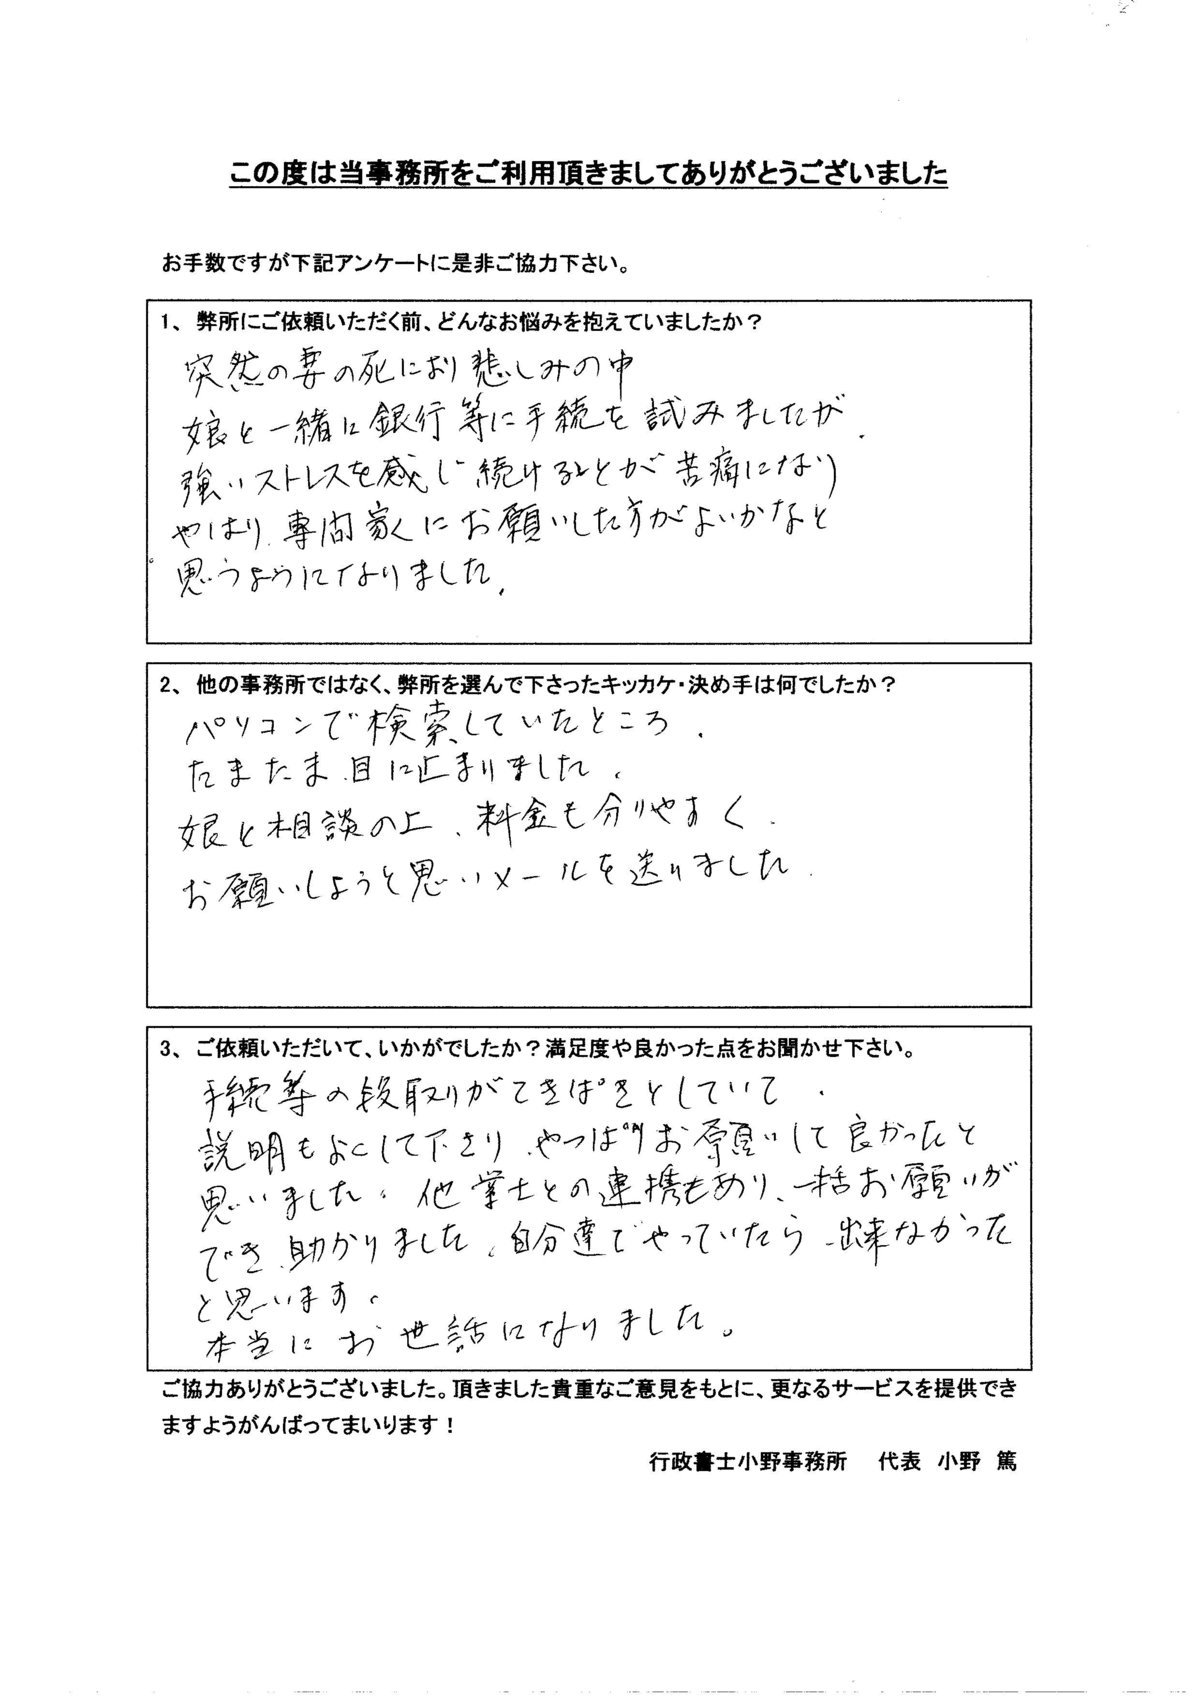 この度は当事務所をご利用頂きましてありがとうございました
お手数ですが下記アンケートに是非ご協力下さい。
1、弊所にご依頼いただく前、どんなお悩みを抱えていましたか？
突然の妻の死により悲しみの中
娘と一緒に銀行等に手続を試みましたが、
強いストレスを感じ続けることが苦痛になり
やはり、専門家にお願いした方がよいかなと
思うようになりました。
2、他の事務所ではなく、弊所を選んで下さったキッカケ・決め手は何でしたか？
パソコンで検索していたところ、
たまたま目に止まりました。
娘と相談の上、料金も分りやすく、
お願いしようと思いメールを送りました。
3、ご依頼いただいて、いかがでしたか？満足度や良かった点をお聞かせ下さい。
手続等の段取りがてきぱきとしていて、
説明もよくして下さり、やっぱりお願いして良かったと
思いました。他業士との連携もあり、一括お願いが
でき、助かりました。自分達でやっていたら、出来なかった
と思います。
本当にお世話になりました。
ご協力ありがとうございました。頂きました貴重なご意見をもとに、更なるサービスを提供でき
ますようがんばってまいります！
行政書士小野事務所　代表　小野　篤